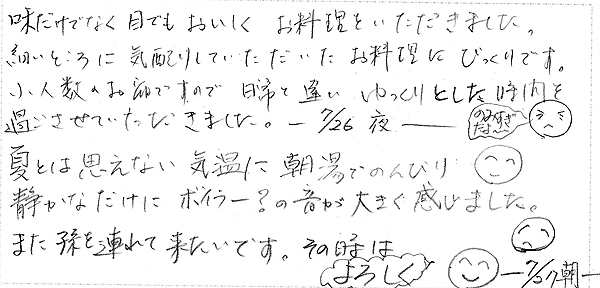 味だけでなく目でもおいしくお料理をいただきました。
細いところに気配りしていただいたお料理にびっくりです。
小人数のお宿ですので日常と違いゆっくりとした時間を
過ごさせていただきました。― 7/26 夜 ―
のみすぎ
だよ…
夏とは思えない気温に朝湯でのんびり
静かなだけにボイラー？の音が大きく感じました。
また孫を連れて来たいです。その時は
よろしく
― 7/27 朝 ―